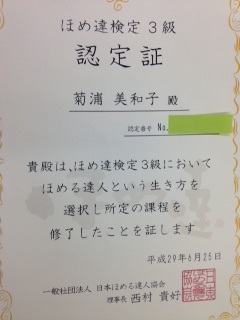 ほめ達検定３級
認定証
菊浦 美和子 殿
認定番号 No.
貴殿は、ほめ達検定3級において
ほめる達人という生き方を
選択し所定の課程を
修了したことを証します
平成29年6月25日
一般社団法人 日本ほめる達人協会
理事長 西村 貴好